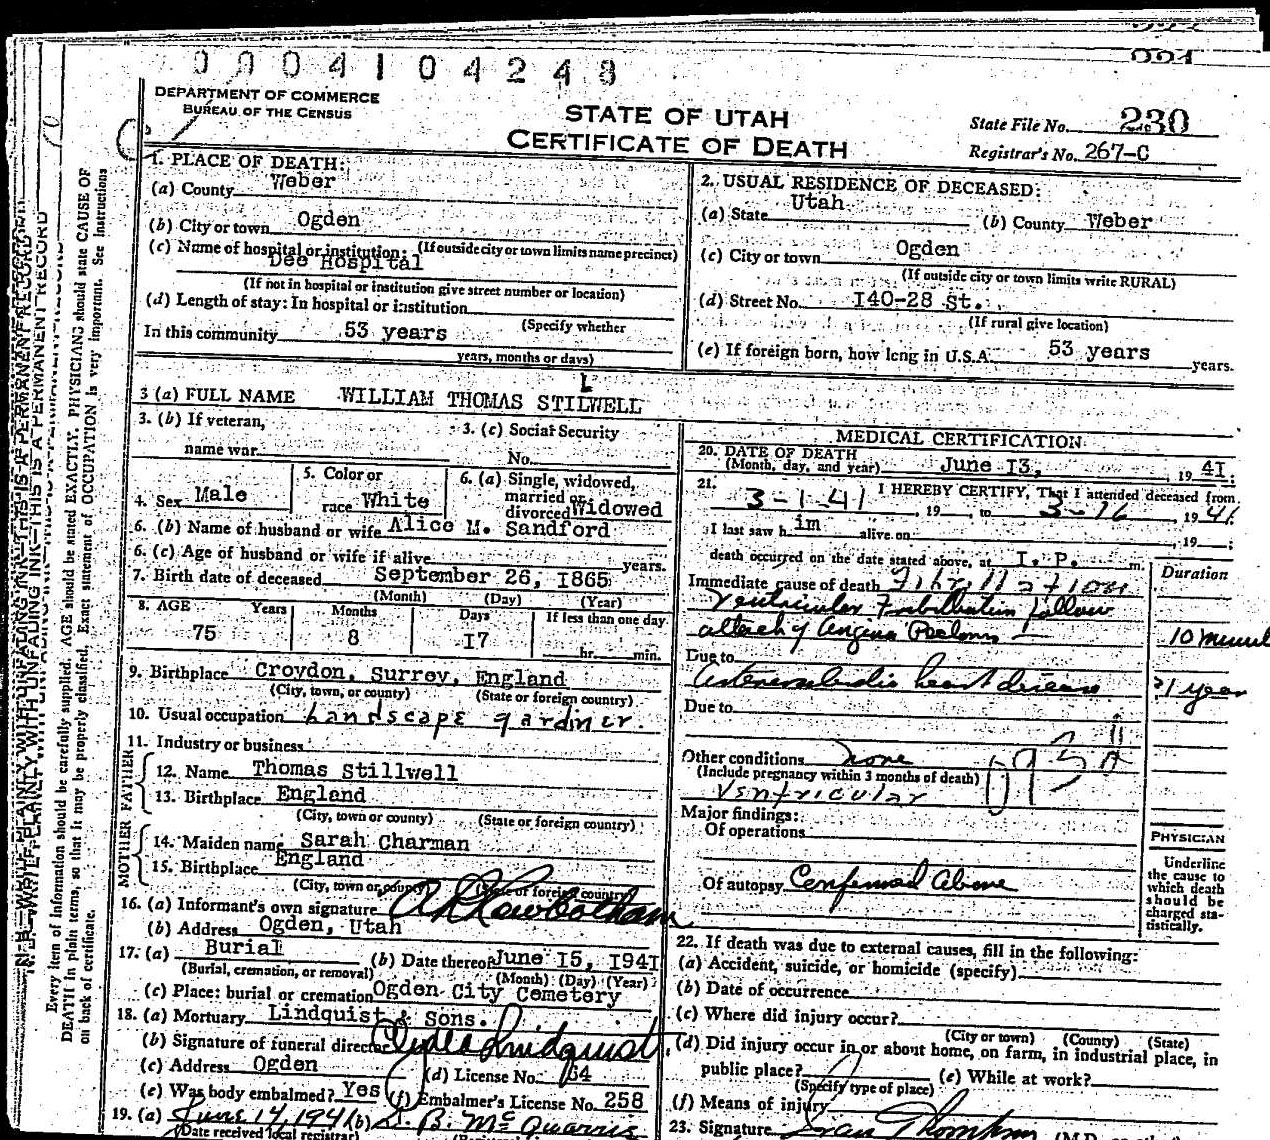 0004104248
DEPARTMENT OF COMMERCE
BUREAU OF THE CENSUS
STATE OF UTAH
CERTIFICATE OF DEATH
State File No. 230
Registrar's No. 267-C
1. PLACE OF DEATH:
(a) County Weber
(b) City or town Ogden
(If outside city or town limits name precinct)
(c) Name of hospital or institution:
Dee Hospital
(If not in hospital or institution give street number or location)
(d) Length of stay: In hospital or institution
(Specify whether
In this community 53 years
years, months or days)
2. USUAL RESIDENCE OF DECEASED:
(a) State Utah (b) County Weber
(c) City or town Ogden
(If outside city or town limits write RURAL)
(d) Street No. 140-28 St.
(If rural give location)
(e) If foreign born, how long in U.S.A. 53 years years.
3 (a) FULL NAME WILLIAM THOMAS STILWELL
L
3. (b) If veteran,
name war
3. (c) Social Security
No.
4. Sex Male
5. Color or
race White
6. (a) Single, widowed,
married or
divorced Widowed
6. (b) Name of husband or wife Alice M. Sandford
6. (c) Age of husband or wife if alive years.
7. Birth date of deceased September 26, 1865
(Month) (Day) (Year)
8. AGE Years Months Days If less than one day
75 8 17 hr. min.
9. Birthplace Croydon, Surrey, England
(City, town, or county) (State or foreign country)
10. Usual occupation Landscape gardner.
11. Industry or business
FATHER
12. Name Thomas Stillwell
13. Birthplace England
(City, town or county) (State or foreign country)
MOTHER
14. Maiden name Sarah Charman
15. Birthplace England
(City, town or county) (State or foreign country)
16. (a) Informant's own signature
(b) Address Ogden, Utah
17. (a) Burial (b) Date thereof June 15, 1941
(Burial, cremation, or removal) (Month) (Day) (Year)
(c) Place: burial or cremation Ogden City Cemetery
18. (a) Mortuary Lindquist & Sons.
(b) Signature of funeral director Clyde Lindquist
(c) Address Ogden (d) License No. 64
(e) Was body embalmed? Yes (f) Embalmer's License No. 258
19. (a) June 14, 1941 (b) D. B. McQuarrie
(Date received local registrar)
MEDICAL CERTIFICATION
20. DATE OF DEATH
(Month, day, and year) June 13, 1941.
21. I HEREBY CERTIFY, That I attended deceased from
3-1-41, 19 to 3-16 1941
I last saw him alive on 19 ;
death occurred on the date stated above, at 1. P. m.
Duration
Immediate cause of death Fibrillation
Ventricular Fibrillation follow
attack of Angina Pectoris 10 minut
Due to
Arteriosclerotic heart disease >1 year
Due to
Other conditions none
(Include pregnancy within 3 months of death)
Ventricular
Major findings:
Of operations
Of autopsy Confirmed Above
PHYSICIAN
Underline
the cause to
which death
should be
charged sta-
tistically.
22. If death was due to external causes, fill in the following:
(a) Accident, suicide, or homicide (specify)
(b) Date of occurrence
(c) Where did injury occur?
(City or town) (County) (State)
(d) Did injury occur in or about home, on farm, in industrial place, in
public place? (e) While at work?
(Specify type of place)
(f) Means of injury
23. Signature
Every item of information should be carefully supplied. AGE should be stated EXACTLY. PHYSICIANS should state CAUSE OF
DEATH in plain terms, so that it may be properly classified. Exact statement of OCCUPATION is very important. See instructions
on back of certificate.